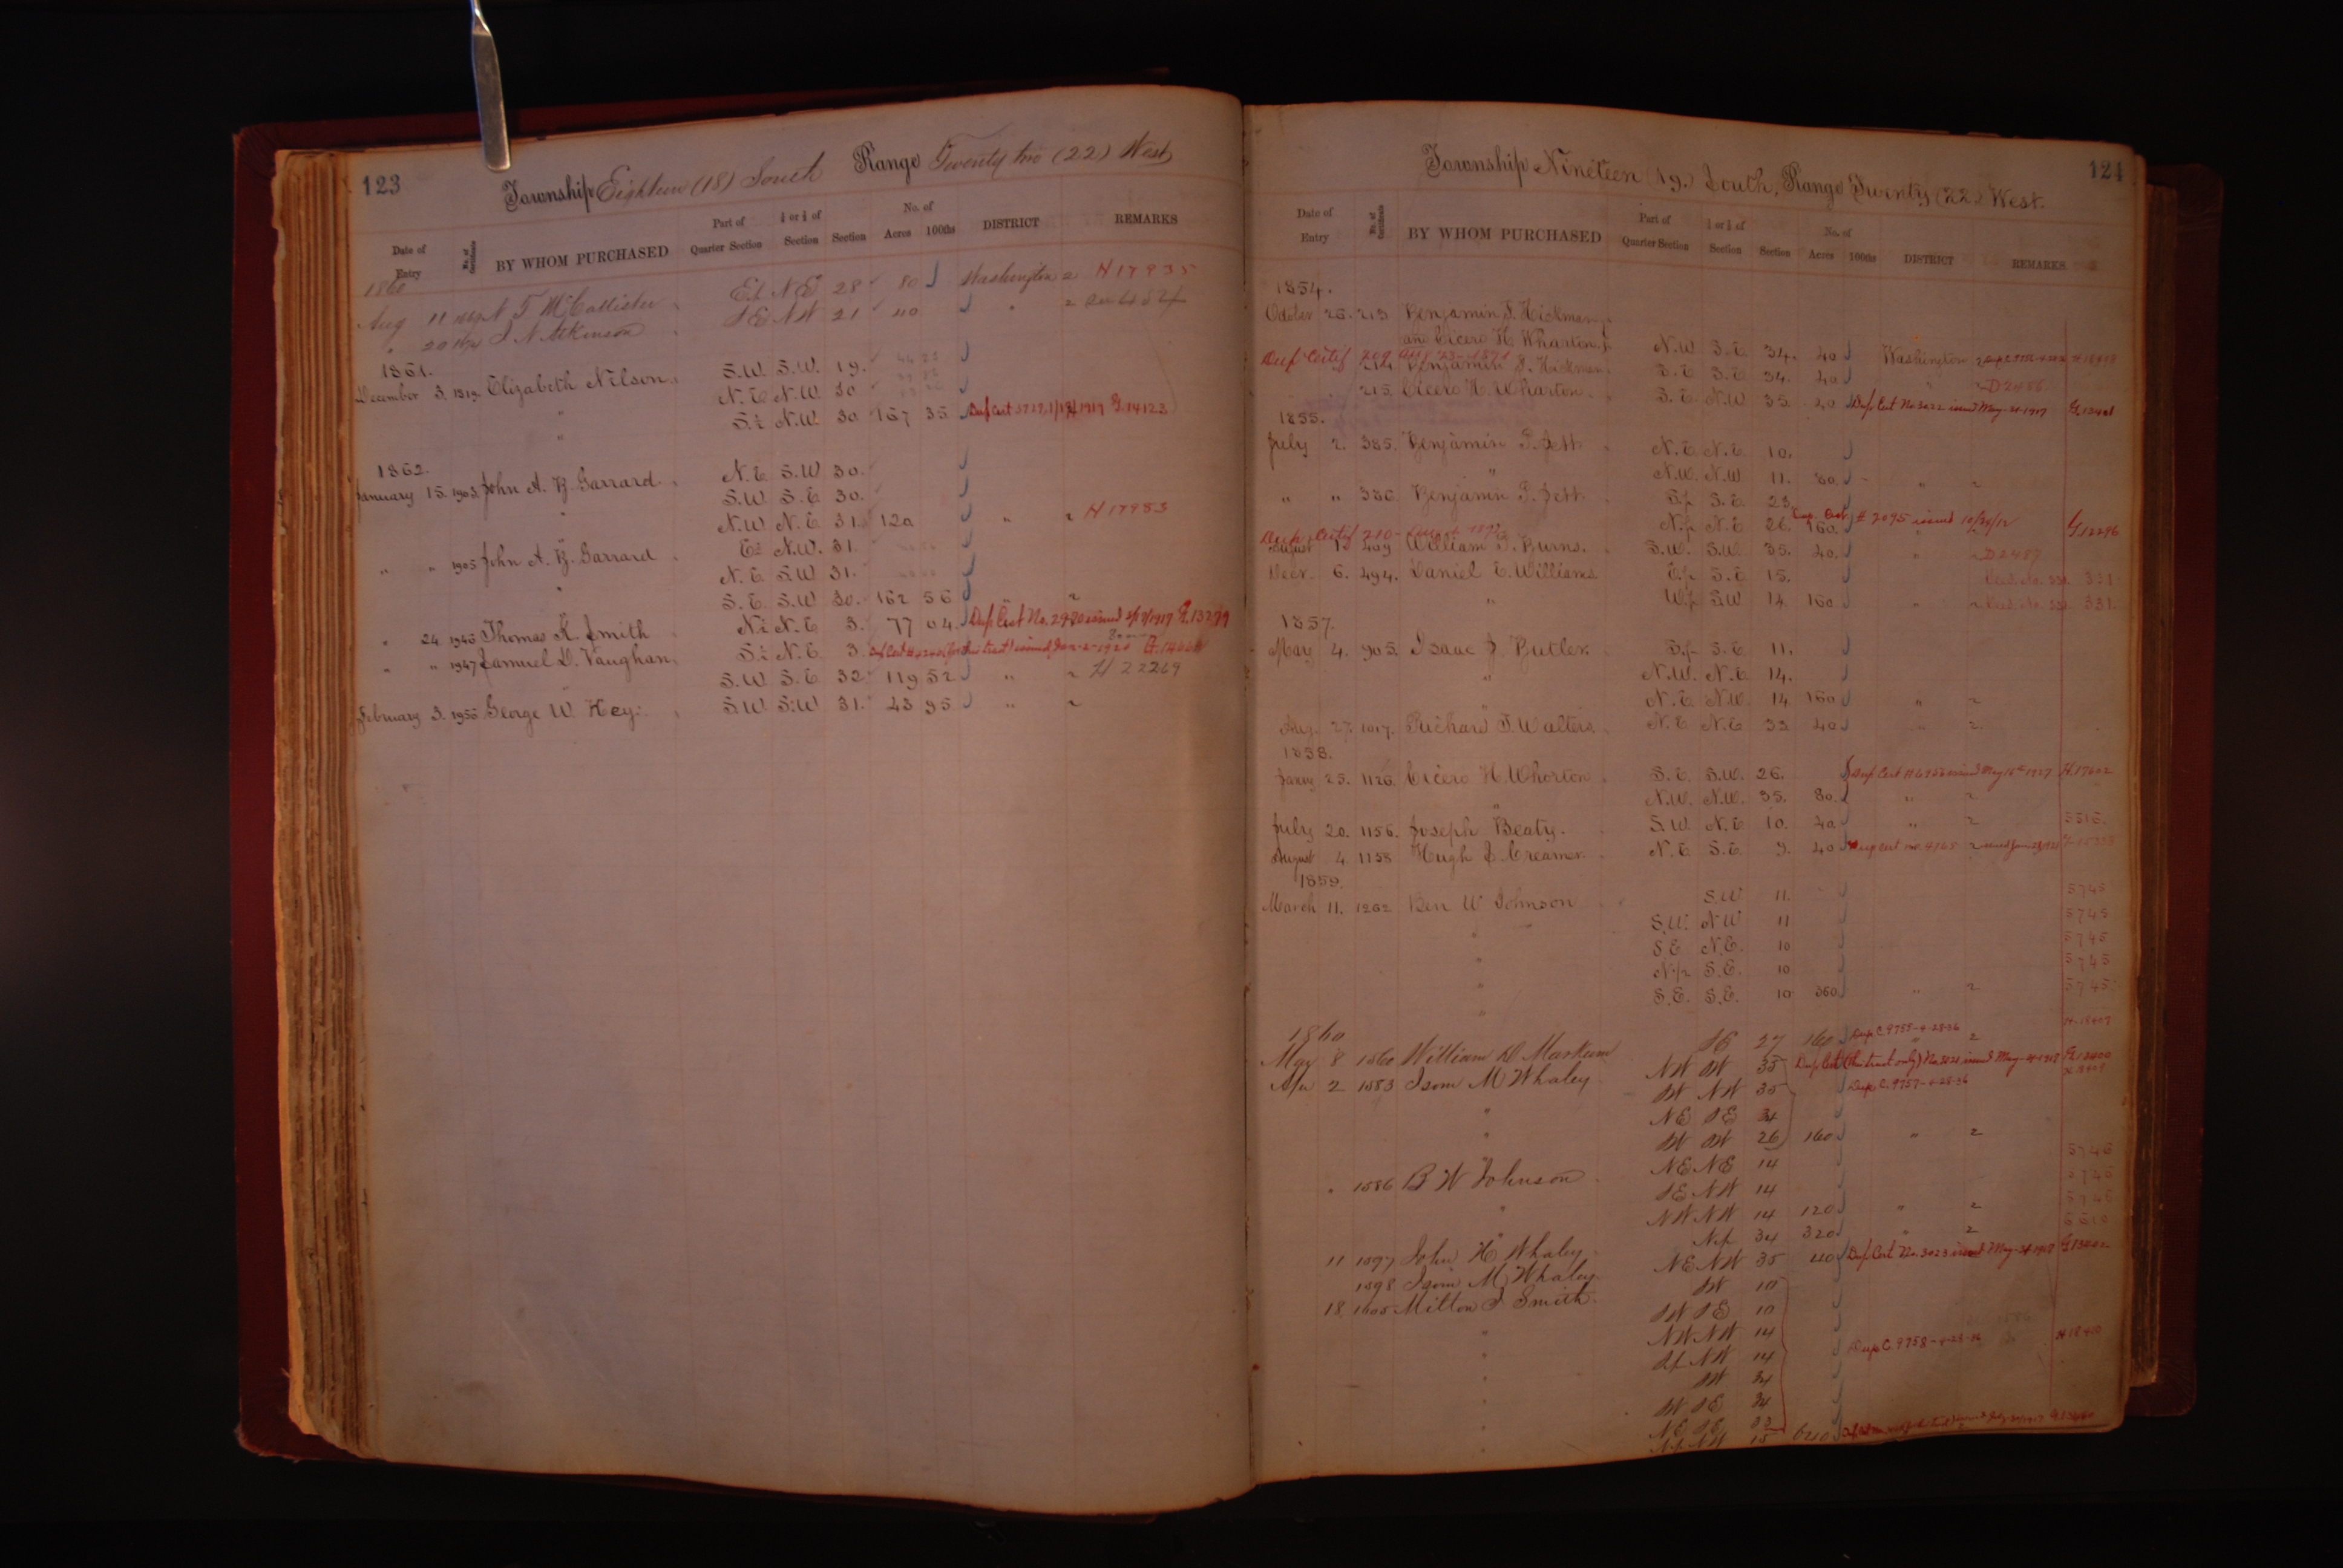 123
Township Eighteen (18) South Range Twenty two (22) West
Date of Entry No. of Certificate BY WHOM PURCHASED Part of Quarter Section ½ or ¼ of Section Section No. of Acres 100ths DISTRICT REMARKS
1860
Aug 11 N T McCallister E½ NE 28 80 Washington 2 H17935
" 20 J N Atkinson SE NW 21 40 " 2
1861.
December 3. 1819. Elizabeth Nilson S.W. S.W. 19.
" N.E. N.W. 30
" S.½ N.W. 30 157 35 Dup Cert 3727, 1/19/1919 G.14123
1862.
January 15. 1903. John A. B. Garrard N.E. S.W. 30.
S.W. S.E. 30.
" N.W. N.E. 31. 120 " 2 H17983
E½ N.W. 31.
" " 1905 John A. B. Garrard N.E. S.W. 31.
" S.E. S.W. 30. 162 56 " 2
" 24 1946 Thomas K. Smith N.½ N.E. 3. 77 04. Dup Cert No. 2980 issued
" " 1947 Samuel D. Vaughan S.½ N.E. 3.
S.W. S.E. 32. 119 52 " 2 H 22269
February 3. 1956 George W. Key. S.W. S.W. 31. 43 95 " 2
124
Township Nineteen (19.) South, Range Twenty (22) West.
Date of Entry No. of Certificate BY WHOM PURCHASED Part of Quarter Section ½ or ¼ of Section Section No. of Acres 100ths DISTRICT REMARKS
1854.
October 26. 213 Benjamin J. Hickman
and Cicero H. Wharton N.W S.E. 34. 40 Washington 2
Dup Certif 209
214 Benjamin J. Hickman S.E S.E. 34. 40 " 2 D2486
215. Cicero H. Wharton S.E. N.W 35. 40 Dup Cert No 3022 issued May-24-1917
1855.
July 2. 385. Benjamin P. Jett N.E. N.E. 10.
" N.W. N.W 11. 80. " 2
" " 386. Benjamin P. Jett S.½ S.E. 23.
N.½ N.E. 26. 160. Dup. Cert # 2095 issued 10/24/12 G12296
Dup. Certif 210
August 1. 409 William J. Burns. S.W. S.W 35. 40. " 2 D2487
Decr. 6. 494. Daniel E. Williams E.½ S.E. 15. 331.
" W.½ S.W 14. 160 " 2 331.
1857.
May 4. 905. Isaac J. Butler. S.½ S.E. 11.
" N.W. N.E 14.
N.E N.W. 14 160 " 2
Aug. 27. 1017. Richard T. Walters. N.E N.E 33 40 " 2
1858.
Jany 25. 1126. Cicero H. Whorton S.E. S.W. 26. H.17602
" N.W. N.W. 35. 80. " 2
July 20. 1156. Joseph Beaty. S.W. N.E 10. 40 " 2 5515.
August 4. 1158 Hugh L. Creamer. N.E S.E. 9. 40
1859.
March 11. 1262 Ben W Johnson S.W 11. 5745
" S.W. N.W 11 5745
" S.E N.E. 10 5745
" N.½ S.E. 10 5745
" S.E. S.E. 10 360 " 2 5745
1860
May 8 1560 William D Markum SE 27 160 Dup C. 9755-4-28-36 " 2 H.18407
Apr 2 1583 Isom M Whaley NW SW 35 Dup Cert (this tract only) No. 3021 issued May-24-1917 G.13400
SW NW 35 Dup C. 9757-4-28-36
" NE SE 34
" SW SW 26 160 " 2
" 1586 B W Johnson NE NE 14 5746
SE NW 14 5746
" NW NW 14 120 " 2 5746
11 1597 John H Whaley N½ 34 320 " 2
1598 Isom M Whaley NE NW 35 40 Dup Cert No. 3023 issued May-24-1917 G13402
18 1605 Milton J Smith SW 10
SW SE 10
" NW NW 14
" S½ NW 14 Dup C. 9758-4-28-36 H18410
" SW 34
" SW SE 34
" NE SE 33
" N½ NW 15 640